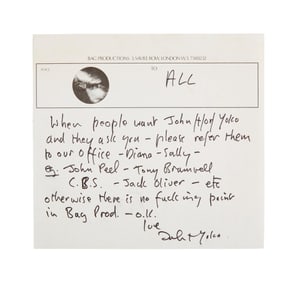 BAG PRODUCTIONS · 3 SAVILE ROW, LONDON W.1. 
TO
ALL
When people want John &/or Yoko
and they ask you – please refer them
to our office – Diana – Sally –
eg: John Peel – Tony Bramwell
C.B.S. – Jack Oliver – etc
otherwise there is no fucking point
in Bag Prod. – o.k.
love
John + Yoko